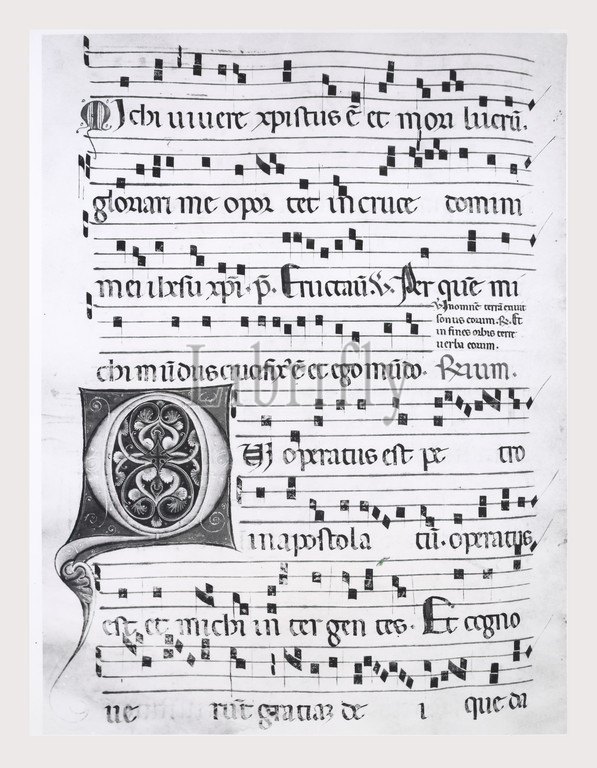 Michi uiuere xpistus ē et mori lucrū.
gloriari me opor tet in cruce domini
mei ihesu xpi. p̄. Eructauit. V. Per quē mi
V. In omnē terrā exiuit
sonus eorum. R. Et
in fines orbis terre
uerba eorum.
chi mūdus crucifix' ē et ego mūdo. Rium.
Librifly
QUi operatus est pe tro
in apostola tū. operatus
est et michi in ter gen tes. Et cogno
ue rūt gratiaz de i que da